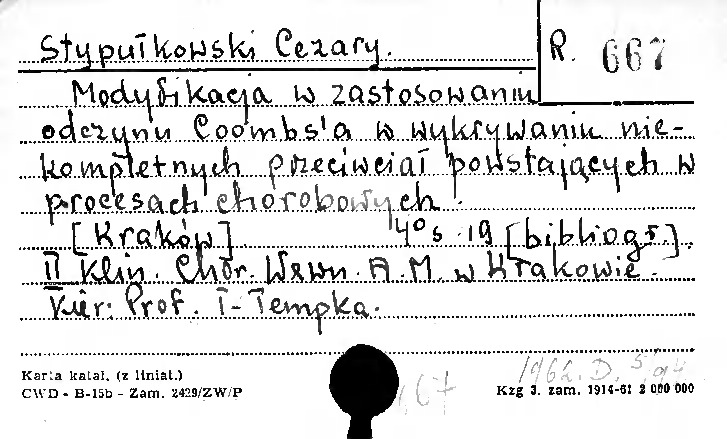 Stypułkowski Cezary.
R. 667
Modyfikacja w zastosowaniu
odczynu Coombs'a w wykrywaniu nie-
kompletnych przeciwciał powstających w
procesach chorobowych.
[Kraków] 4° s. 19 [bibliogr.].
II Klin. Chor. Wewn. A.M. w Krakowie.
Kier. Prof. T. Tempka.
1962. D.
Karta katal. (z liniat.)
CWD - B-15b - Zam. 2429/ZW/P
67
Kzg 3. zam. 1914-61 2 000 000